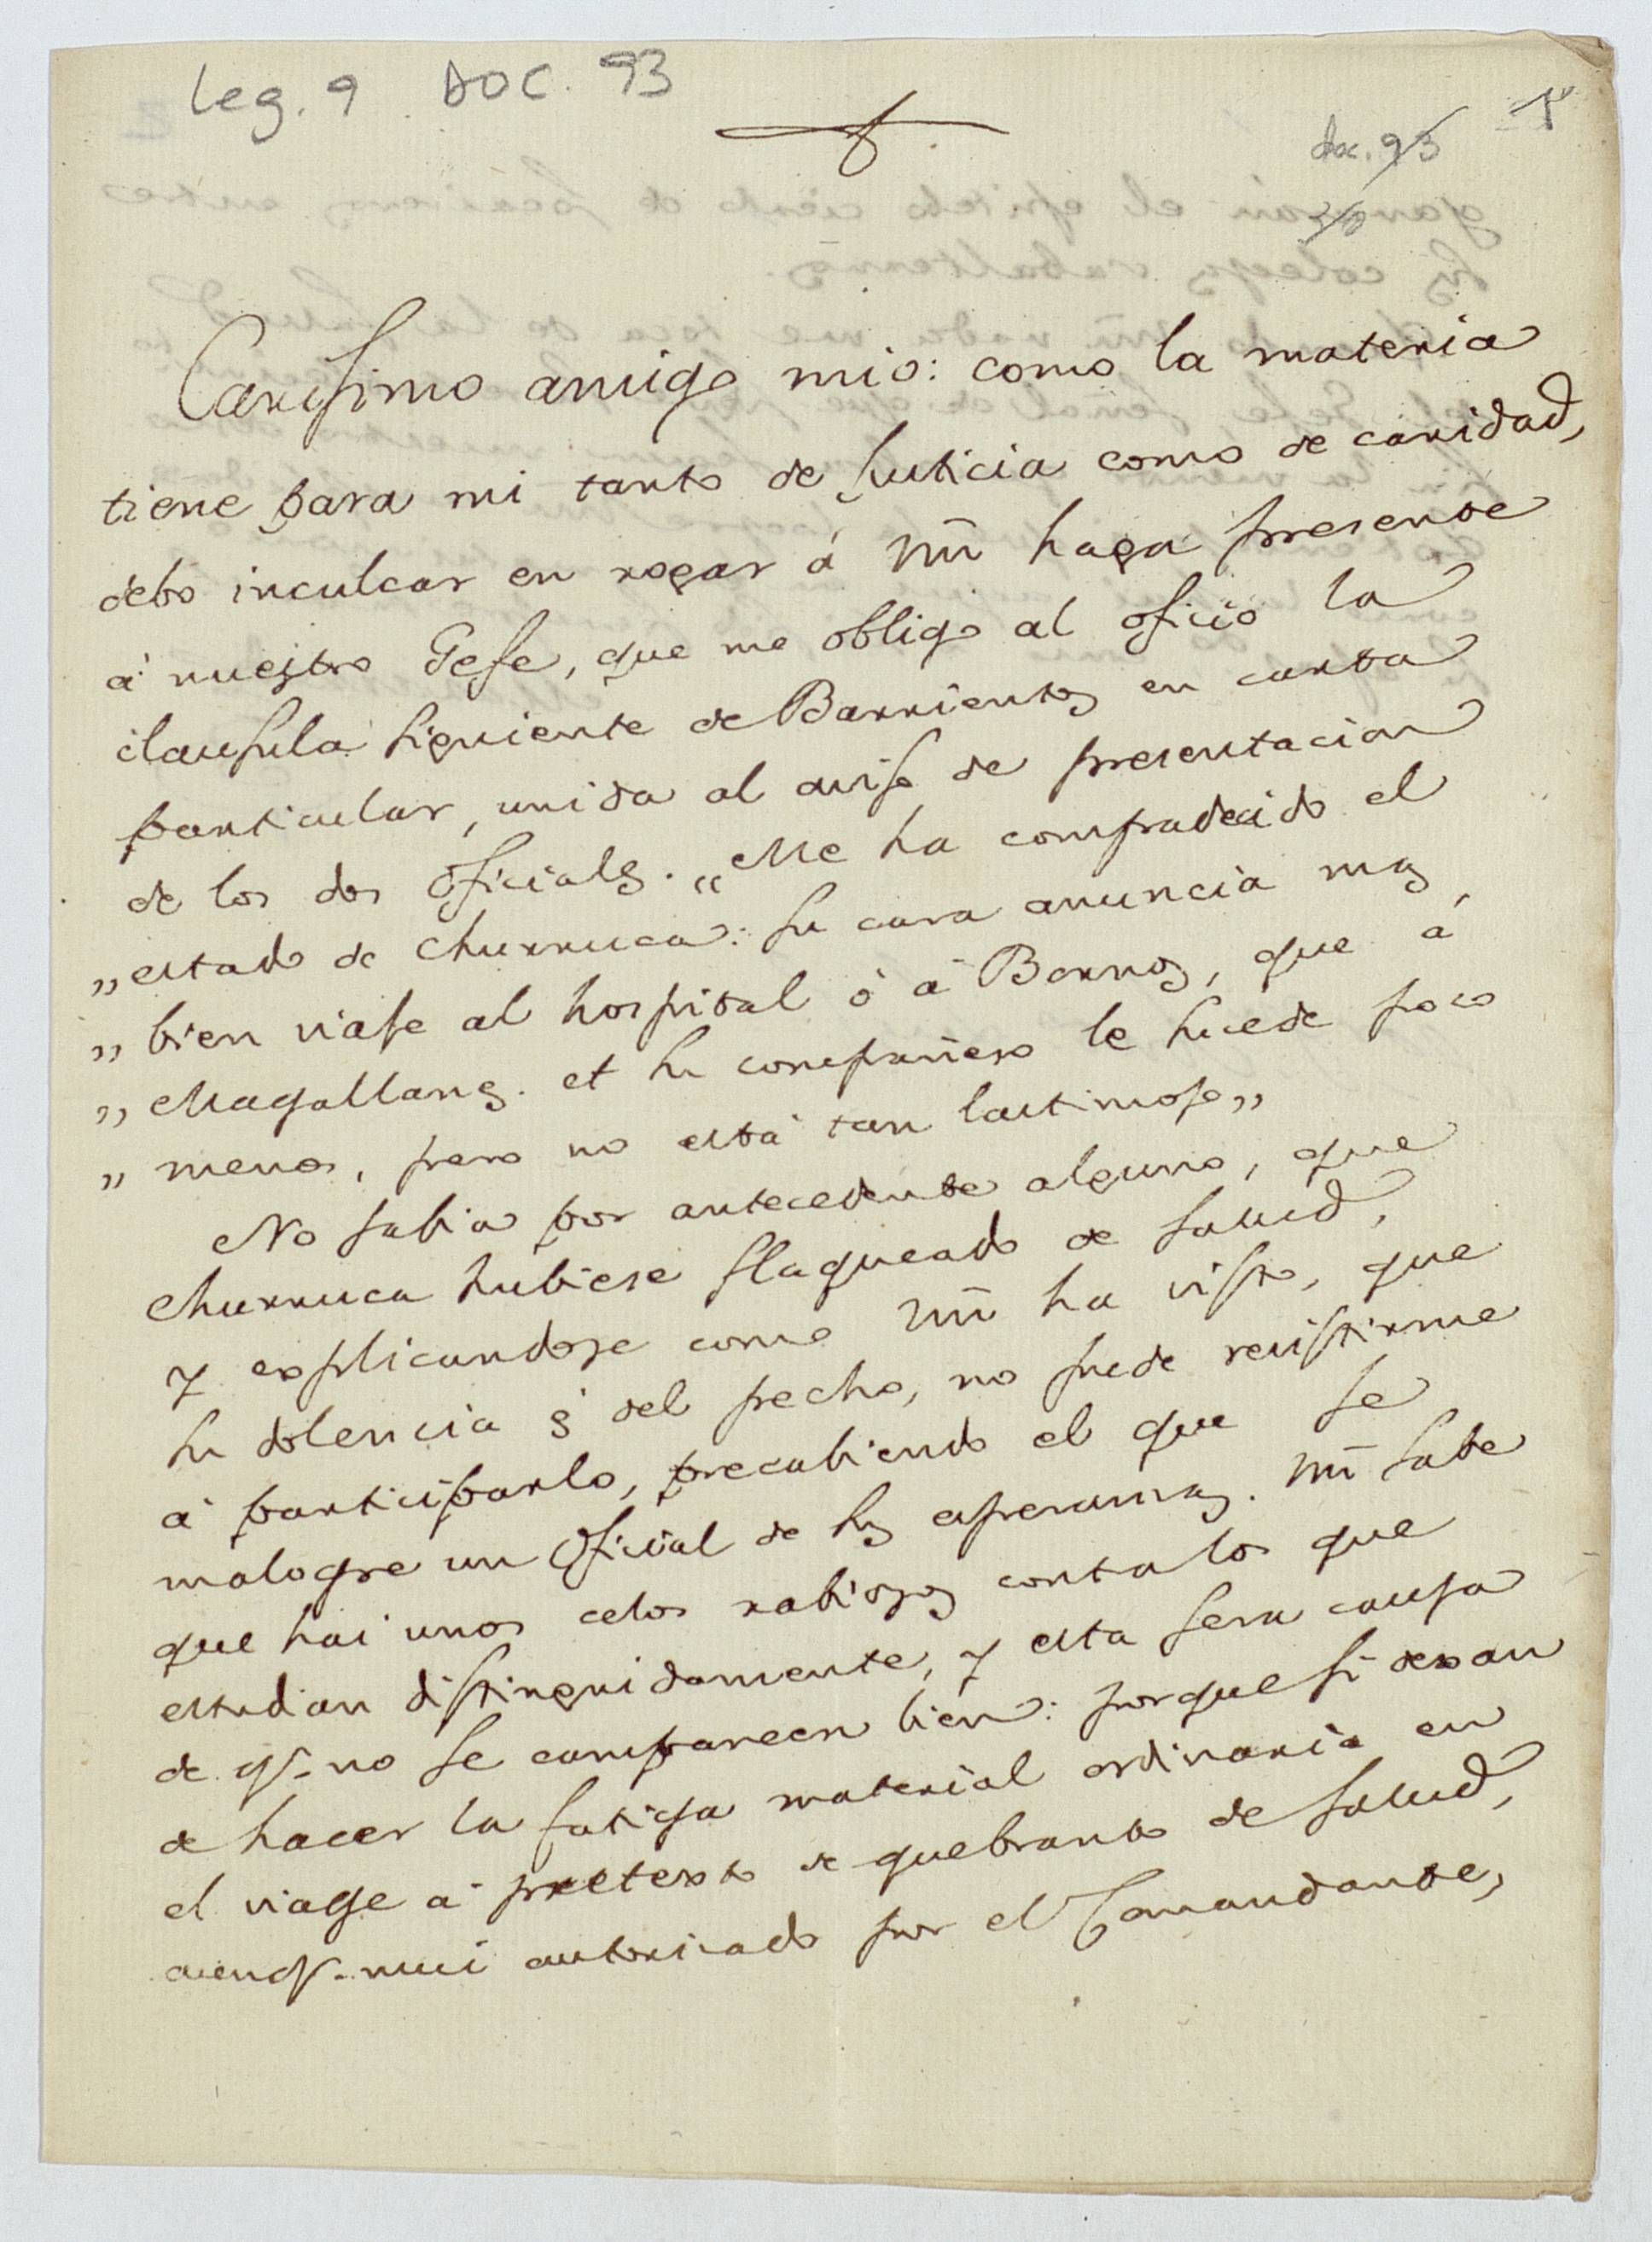 leg. 9 DOC. 93
doc. 93
Carisimo amigo mio: como la materia
tiene para mi tanto de Justicia como de caridad,
debo inculcar en rogar á Vm haga presente
á nuestro Gefe, que me obligo al oficio la
clausula siguiente de Barrientos en carta
particular, unida al aviso de presentacion
de los dos oficiales. „Me ha compadecido el
„estado de Churruca: su cara anuncia mas
„bien viaje al hospital ó á Barros, que á
„Magallanes. et su compañero le sucede poco
„menos, pero no está tan lastimoso„
No sabia por antecedente alguno, que
Churruca hubiese flaqueado de salud,
y explicandose como Vm ha visto, que
su dolencia es del pecho, no pude resistirme
á participarlo, precabiendo el que se
malogre un oficial de sus esperanzas. Vm sabe
que hai unos celos rabiosos contra los que
estudian distinguidamente, y esta sera causa
de qe no se comparecen bien: porque si dexan
de hacer la fatiga material ordinaria en
el viage á pretexto de quebranto de salud,
aunqe mui autorizado por el Comandante,